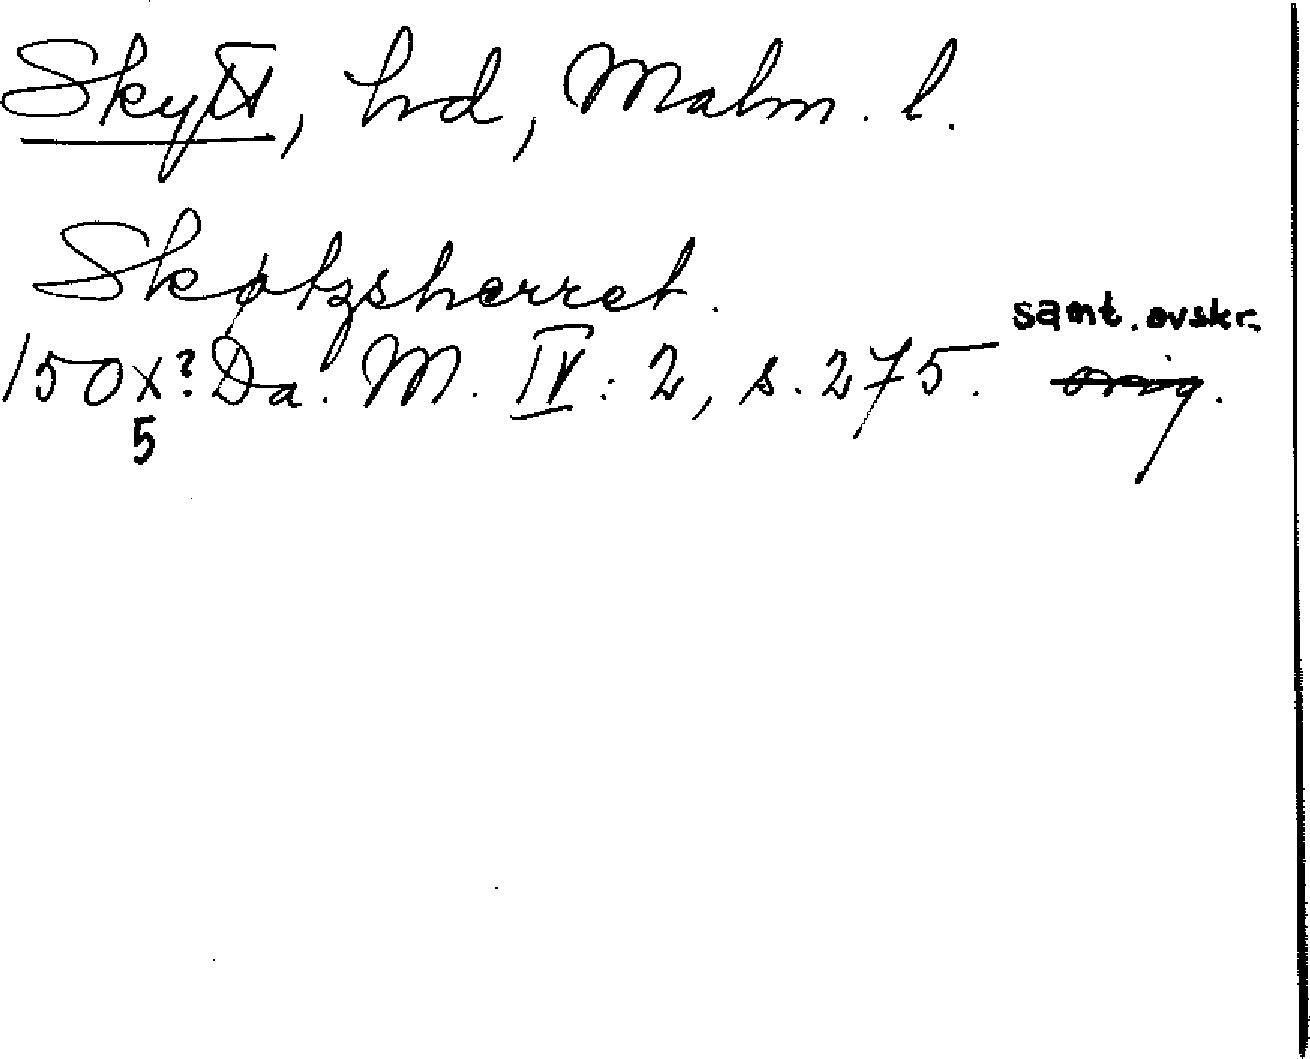 Skytt, hd, Malm. l.
Skøtzsherret.
samt. avskr.
150x? Da. M. IV: 2, s. 275. orig.
5